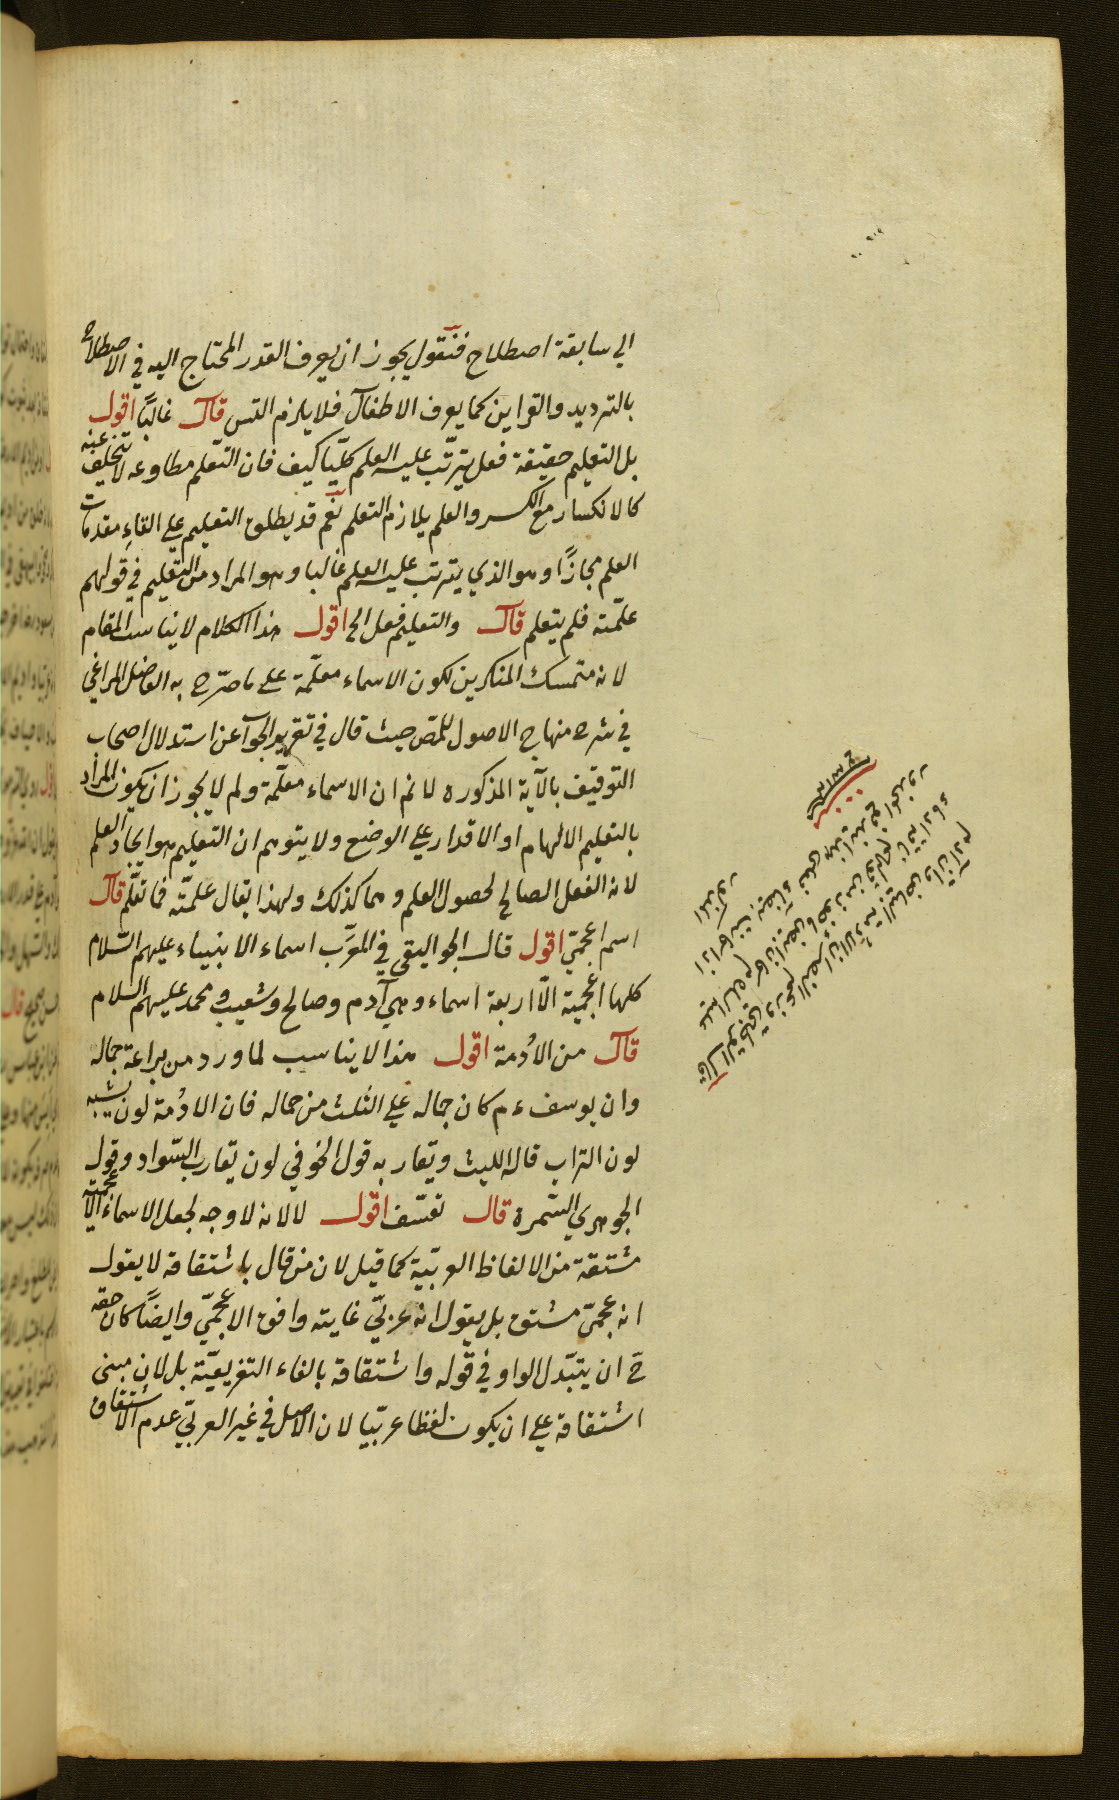 الي سابقة اصطلاح فنقول يجوز ان يعرف القدر المحتاج اليه في الاصطلاح
بالترديد والقراين كما يعرف الاطفال فلا يلزم التس قال غالبًا اقول
بل التعليم حقيقة فعل يترتّب عليه العلم كليّا كيف فان التعّلم مطاوعه لا يتخلف عنه
كالانكسار مع الكسر والعلم يلازم التعلم نعم قد يطلق التعليم على القاء مقدمات
العلم مجازًا وهو الذي يترتب عليه العلم غالبا وهو المراد من التعليم في قولهم
علّمته فلم يتعلم قال والتعليم فعل الخ اقول هذا الكلام لا يناسب المقام
لانه متمسك المنكرين لكون الاسماء معلّمة على ما صرّح به الفاضل المراغي
في شرح منهاج الاصول للمص حيث قال في تقرير الجواب عن استدلال اصحاب
التوقيف بالآية المذكوره لا نم ان الاسماء معلّمة ولم لا يجوز ان يكون المراد
بالتعليم الالهام او الاقدار على الوضع ولا يتوهم ان التعليم هو ايجاد العلم
لانه الفعل الصالح لحصول العلم وهما كذلك ولهذا يقال علمّته فما تعلّم قال
اسم اعجميّ اقول قال الجواليقي في المعرّب اسماء الانبياء عليهم السّلام
كلها اعجمية الّا اربعة اسماء وهي آدم وصالح وشعيب ومحمد عليهم السلام
قال من الاُدمة اقول هذا لا يناسب لما ورد من براعة جماله
وان يوسف ءم كان جماله على الثلث من جماله فان الادُمة لون يشبه
لون التراب قاله الليث ويقاربه قول الخوفي لون يقارب السّواد وقول
الجوهري السّمرة قال تعسّف اقول لا لانه لا وجه لجعل الاسماء الاعجمية
مشتقة من الالفاظ العربيّة كما قيل لان من قال باشتقاقه لا يقول
انه عجميّ مشتق بل يقول انه عربيّ غايته وافق الاعجميّ وايضًا كان حقه
ح ان يتبّدل الواو في قوله واشتقاقه بالفاء التفريعيّة بل لان مبنى
اشتقاقه على ان يكون لفظا عربيّا لان الاصل في غير العربيّ عدم الاشتقاق